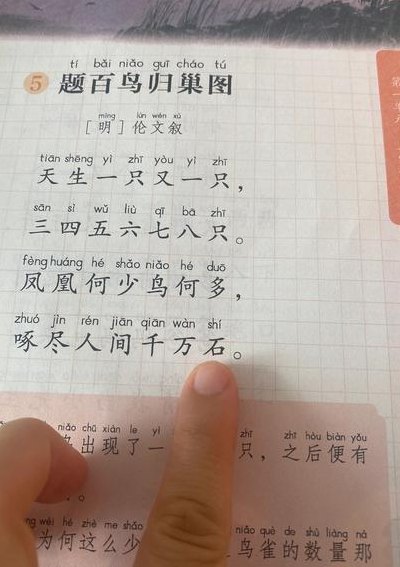 tí bǎi niǎo guī cháo tú
5 题百鸟归巢图
míng lún wén xù
[明]伦文叙
tiān shēng yì zhī yòu yì zhī
天生一只又一只，
sān sì wǔ liù qī bā zhī
三四五六七八只。
fèng huáng hé shǎo niǎo hé duō
凤凰何少鸟何多，
zhuó jìn rén jiān qiān wàn shí
啄尽人间千万石。
niǎo chū xiàn le yì zhī zhī hòu biàn yǒu
出现了一只，之后便有
wèi hé zhè me shǎo niǎo què de shù liàng nà
为何这么少鸟雀的数量那
第一